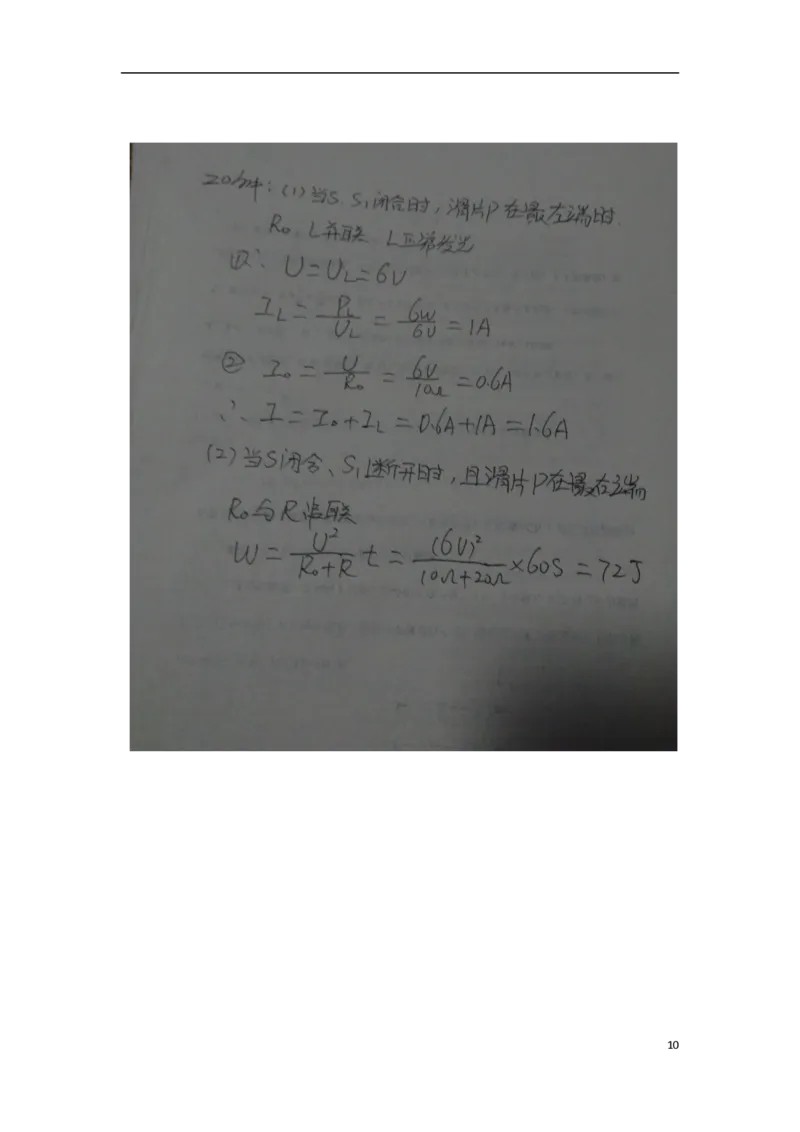 20.解：(1)当S、S₁闭合时，滑片P在最左端时.
R₀、L并联、L正常发光
①∵ U=U_L=6V
I_L = P_L/U_L = 6W/6V = 1A
② I₀ = U/R₀ = 6V/10Ω = 0.6A
∴ I = I₀+I_L = 0.6A+1A = 1.6A
(2)当S闭合、S₁断开时，且滑片P在最右端
R₀与R串联
W = U²/(R₀+R) t = (6V)²/(10Ω+20Ω) ×60S = 72J
10